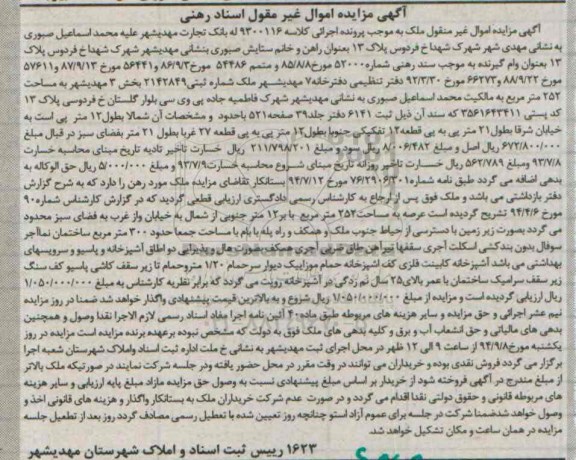 آگهی مزایده اموال غیر مقول اسناد رهنی
آگهی مزایده اموال غیر منقول ملک به موجب پرونده اجرائی کلاسه ۹۳۰۰۱۱۶ له بانک تجارت مهدیشهر علیه محمد اسماعیل صبوری
به نشانی مهدی شهر شهرک شهدا خ فردوس پلاک ۱۳ بعنوان راهن و خانم ستایش صبوری بنشانی مهدیشهر شهرک شهدا خ فردوس پلاک
۱۳ بعنوان وام گیرنده به موجب سند رهنی شماره ۵۲۰۰۰ مورخ ۸۵/۸/۸ و متمم ۵۴۴۸۶ مورخ ۸۶/۹/۳ و ۵۶۴۴۱ مورخ ۸۷/۹/۱۳ و ۵۷۶۱۱
مورخ ۸۸/۹/۲۲ و ۶۶۲۷۳ مورخ ۹۲/۳/۳۰ دفتر تنظیمی دفترخانه ۷ مهدیشهر ملک شماره ثبتی ۲۱۴۲۸۴۹ بخش ۳ مهدیشهر به مساحت
۲۵۲ متر مربع به مالکیت محمد اسماعیل صبوری به نشانی مهدیشهر شهرک فاطمیه جاده پی وی سی بلوار گلستان خ فردوسی پلاک ۱۳
کد پستی ۳۵۶۱۶۴۳۴۱۱ که سند آن ذیل ثبت ۶۱۴۱ دفتر جلد ۳۹ صفحه ۵۲۱ باحدود و مشخصات آن شمالا بطول ۱۲ متر پی است به
خیابان شرقا بطول ۲۱ متر پی به پی قطعه ۱۲ تفکیکی جنوبا بطول ۱۲ متر پی به پی قطعه ۲۷ غربا بطول ۲۱ متر بفضای سبز در قبال مبلغ
۶۷۲/۸۰۰/۰۰۰ ریال اصل و مبلغ ۸/۰۰۶/۴۸۲ ریال سود و مبلغ ۲۱۱/۷۹۸/۲۰۱ ریال خسارت تاخیر تادیه تاریخ مبنای محاسبه خسارت
۹۳/۷/۸ ومبلغ ۵۶۲/۷۸۹ ریال خسارت تاخیر روزانه تاریخ مبنای شروع محاسبه خسارت ۹۳/۷/۹ و مبلغ ۵/۰۰۰/۰۰۰ ریال حق الوکاله به
بدهی اضافه می گردد طبق نامه شماره ۷۶/۲۹۰۶/۳۰۱ مورخ ۹۴/۷/۱۲ بستانکار تقاضای مزایده ملک مورد رهن را دارد که به شرح گزارش
دفتر بازداشتی می باشد و ملک فوق پس از ارجاع به کارشناس رسمی دادگستری ارزیابی قطعی گردید که در گزارش کارشناس شماره ۹۰
مورخ ۹۴/۴/۶ تشریح گردیده است عرصه به مساحت ۲۵۲ متر مربع با بر ۱۲ متر جنوبی از شمال به خیابان واز غرب به فضای سبز محدود
می گردد بصورت زیر زمین با دسترسی از حیاط جنوب ملک و همکف و راه پله با بام با مساحت جمعا حدود ۳۰۰ متر مربع ساختمان نماآجر
سوفال بدون بندکشی اسکلت آجری سقفها تیرآهن طاق ضربی آجری همکف بصورت هال و پذیرائی دو اطاق آشپزخانه و پاسیو و سرویسهای
بهداشتی می باشد آشپزخانه کابینت فلزی کف اشپزخانه حمام موزاییک دیوار سرحمام ۱/۲۰ متروحمام تا زیر سقف کاشی پاسیو کف سنگ
زیر سقف سرامیک ساختمان با عمر بالای ۲۵ سال نم زدگی در آشپزخانه رویت می گردد که برابر نظریه کارشناس به مبلغ ۱/۰۵۰/۰۰۰/۰۰۰
ریال ارزیابی گردیده است و مزایده از مبلغ ۱/۰۵۰/۰۰۰/۰۰۰ ریال شروع و به بالاترین قیمت پیشنهادی واگذار خواهد شد ضمنا در روز مزایده
نیم عشر اجرائی و حق مزایده و سایر هزینه های مربوطه طبق ماده ۴۰ آئین نامه اجرا مفاد اسناد رسمی لازم الاجرا نقدا وصول و همچنین
بدهی های مالیاتی و حق انشعاب آب و برق و کلیه بدهی های ملک فوق به دولت که مشخص نبوده برعهده برنده مزایده است مزایده در روز
یکشنبه مورخ ۹۴/۹/۸ از ساعت ۹ الی ۱۲ ظهر در محل اجرای ثبت مهدیشهر به نشانی خ ملت اداره ثبت اسناد واملاک شهرستان شعبه اجرا
برگزار می گردد فروش نقدی بوده و خریداران می توانند در وقت مقرر در محل حضور یافته ودر جلسه شرکت نمایند در صورتیکه ملک بالاتر
از مبلغ مندرج در آگهی فروخته شود از خریدار بر اساس مبلغ پیشنهادی نسبت به وصول حق مزایده مازاد مبلغ پایه ارزیابی و سایر هزینه
های مربوطه قانونی و حقوق دولتی نقدا اقدام می گردد و در صورت عدم شرکت خریداران ملک به بستانکار واگذار و هزینه های قانونی اخذ و
وصول خواهد شدضمنا شرکت در جلسه برای عموم آزاد استو چنانچه روز تعیین شده با تعطیل رسمی مصادف گردد روز بعد از تعطیل جلسه
مزایده در همان ساعت و مکان تشکیل خواهد شد.
۱۶۲۳ رییس ثبت اسناد و املاک شهرستان مهدیشهر